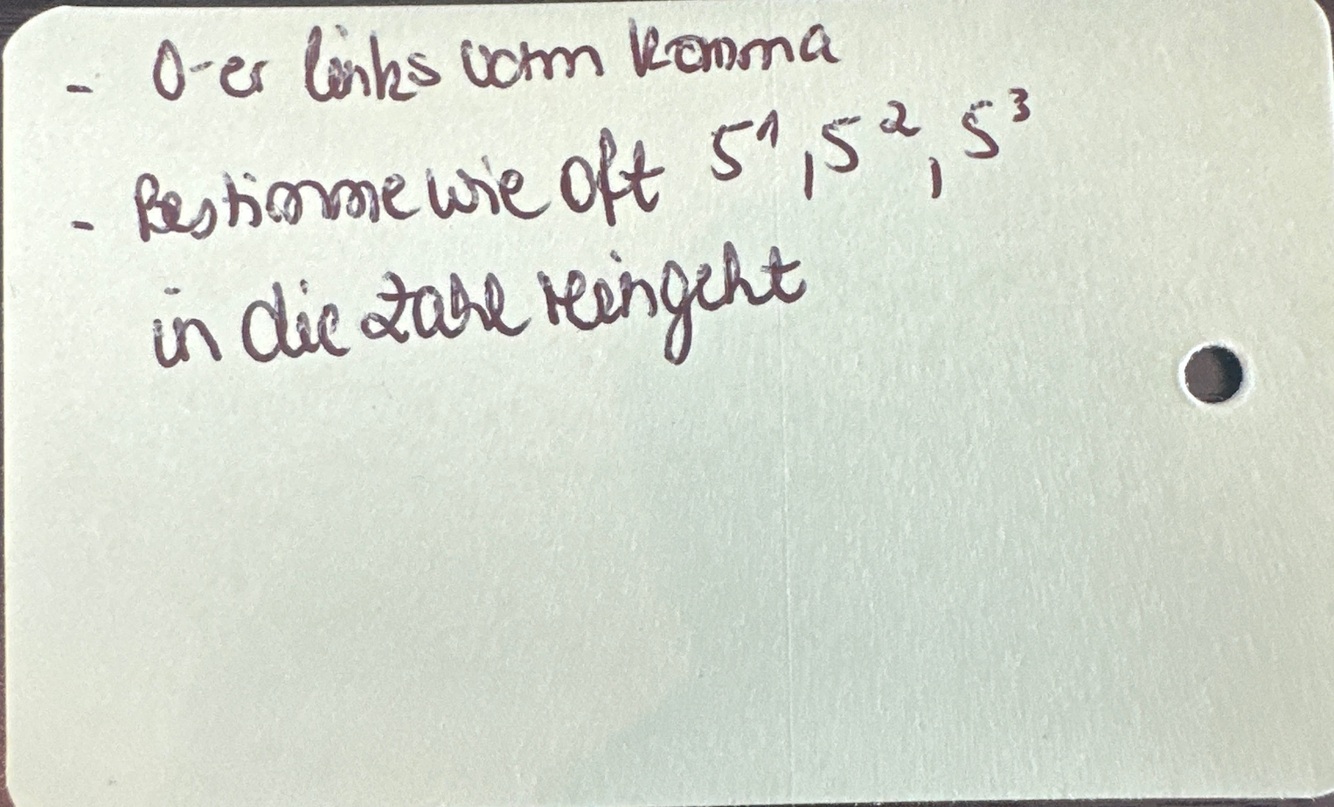 - 0-er links vom Komma
- Bestimme wie oft 5¹, 5², 5³
in die Zahl reingeht